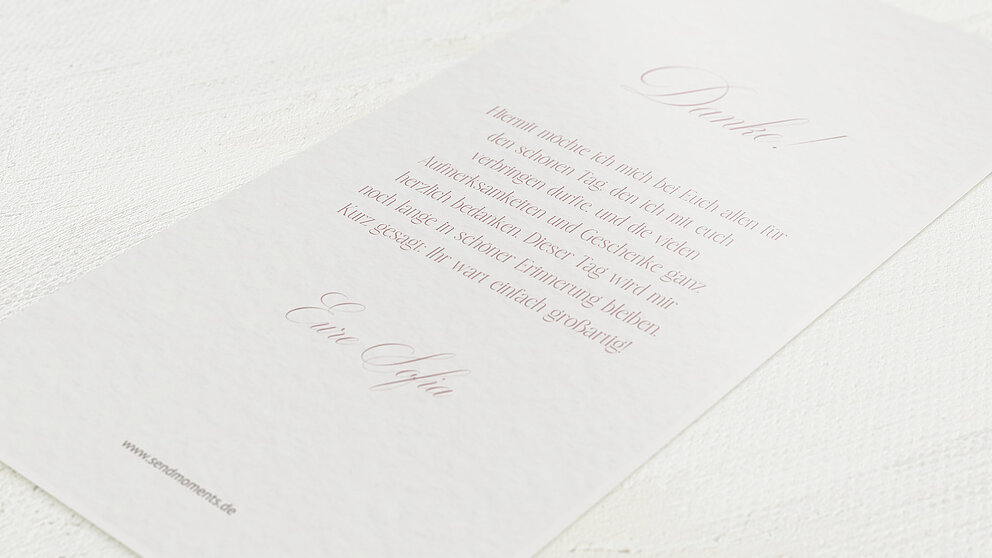 Danke!
Hiermit möchte ich mich bei Euch allen für
den schönen Tag, den ich mit euch
verbringen durfte, und die vielen
Aufmerksamkeiten und Geschenke ganz
herzlich bedanken. Dieser Tag wird mir
noch lange in schöner Erinnerung bleiben.
Kurz gesagt: Ihr wart einfach großartig!
Eure Sofia
www.sendmoments.de